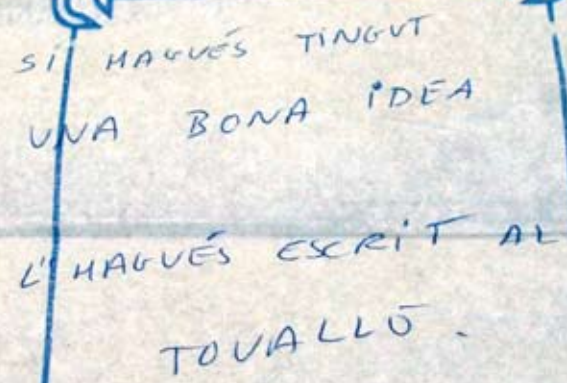 SI HAGUÉS TINGUT
UNA BONA IDEA
L'HAGUÉS ESCRIT AL
TOVALLÓ.